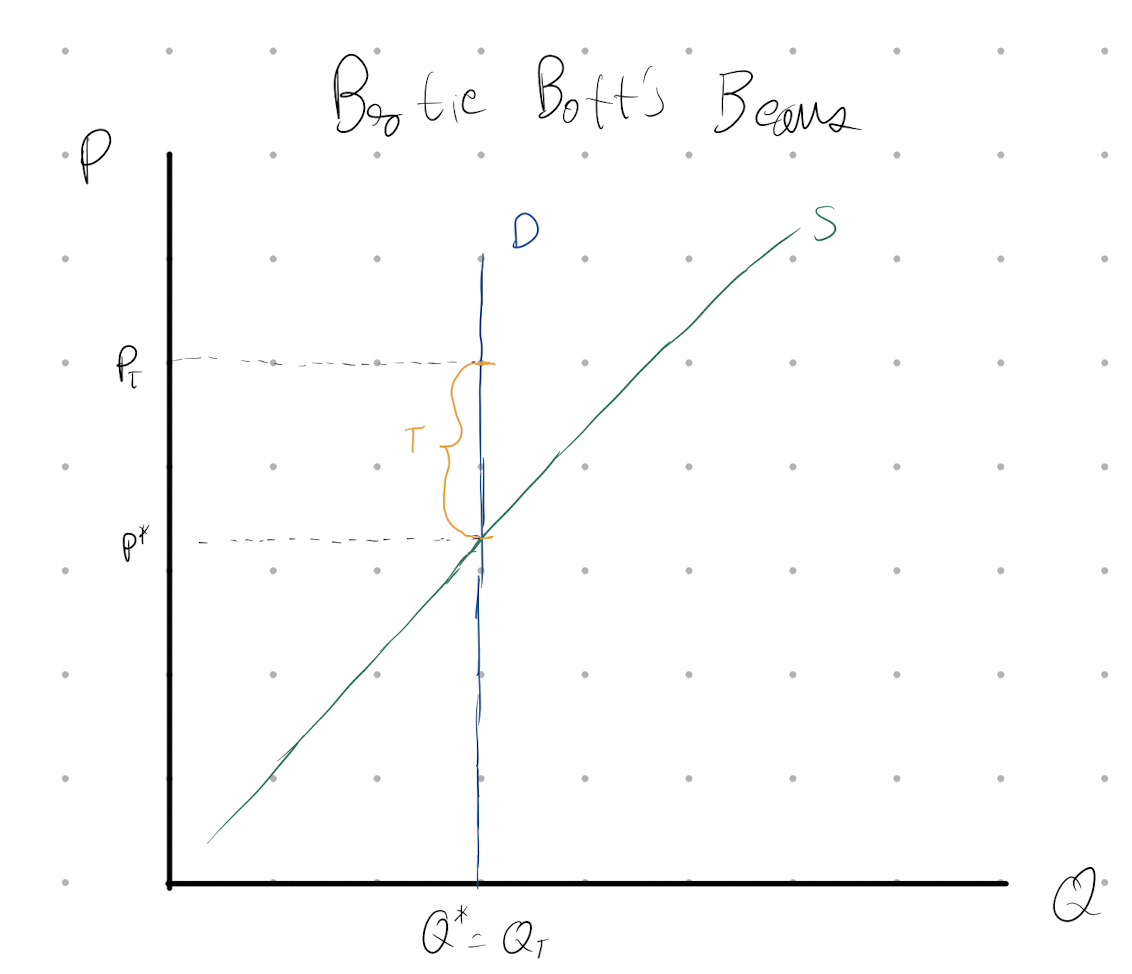 Bertie Bott's Beans
P
D
S
P_T
T
P*
Q* = Q_T
Q